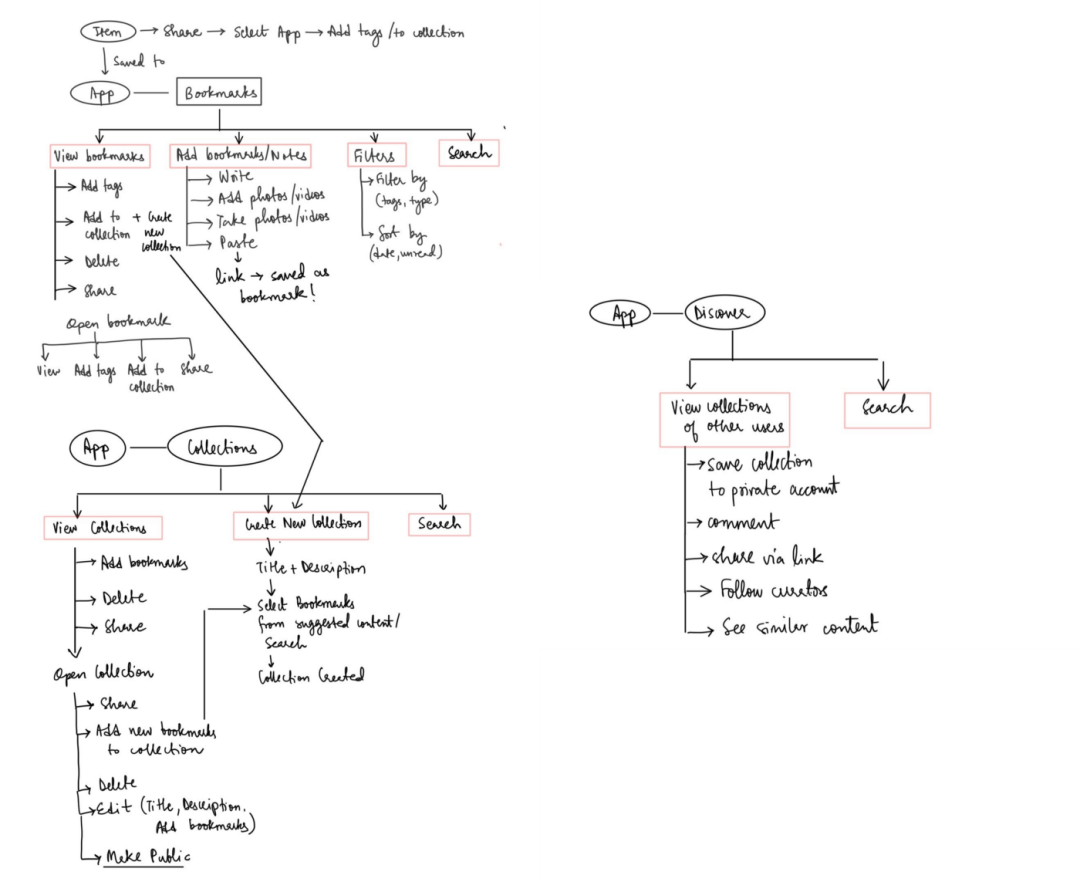 Item → Share → Select App → Add tags /to collection
Saved to
App
Bookmarks
View bookmarks
Add tags
Add to + Create
collection new
collection
Delete
Share
Open bookmark
View
Add tags
Add to
collection
Share
Add bookmarks/Notes
Write
Add photos/videos
Take photos/videos
Paste
link → saved as
bookmark!
Filters
Filter by
(tags, type)
Sort by
(date, unread)
Search
App
Collections
View Collections
Add bookmarks
Delete
Share
Open Collection
Share
Add new bookmarks
to collection
Delete
Edit (Title, Description,
Add bookmarks)
Make Public
Create New Collection
Title + Description
Select Bookmarks
from suggested content/
Search
Collection Created
Search
App
Discover
View collections
of other users
save collection
to private account
comment
share via link
Follow curators
See similar content
Search